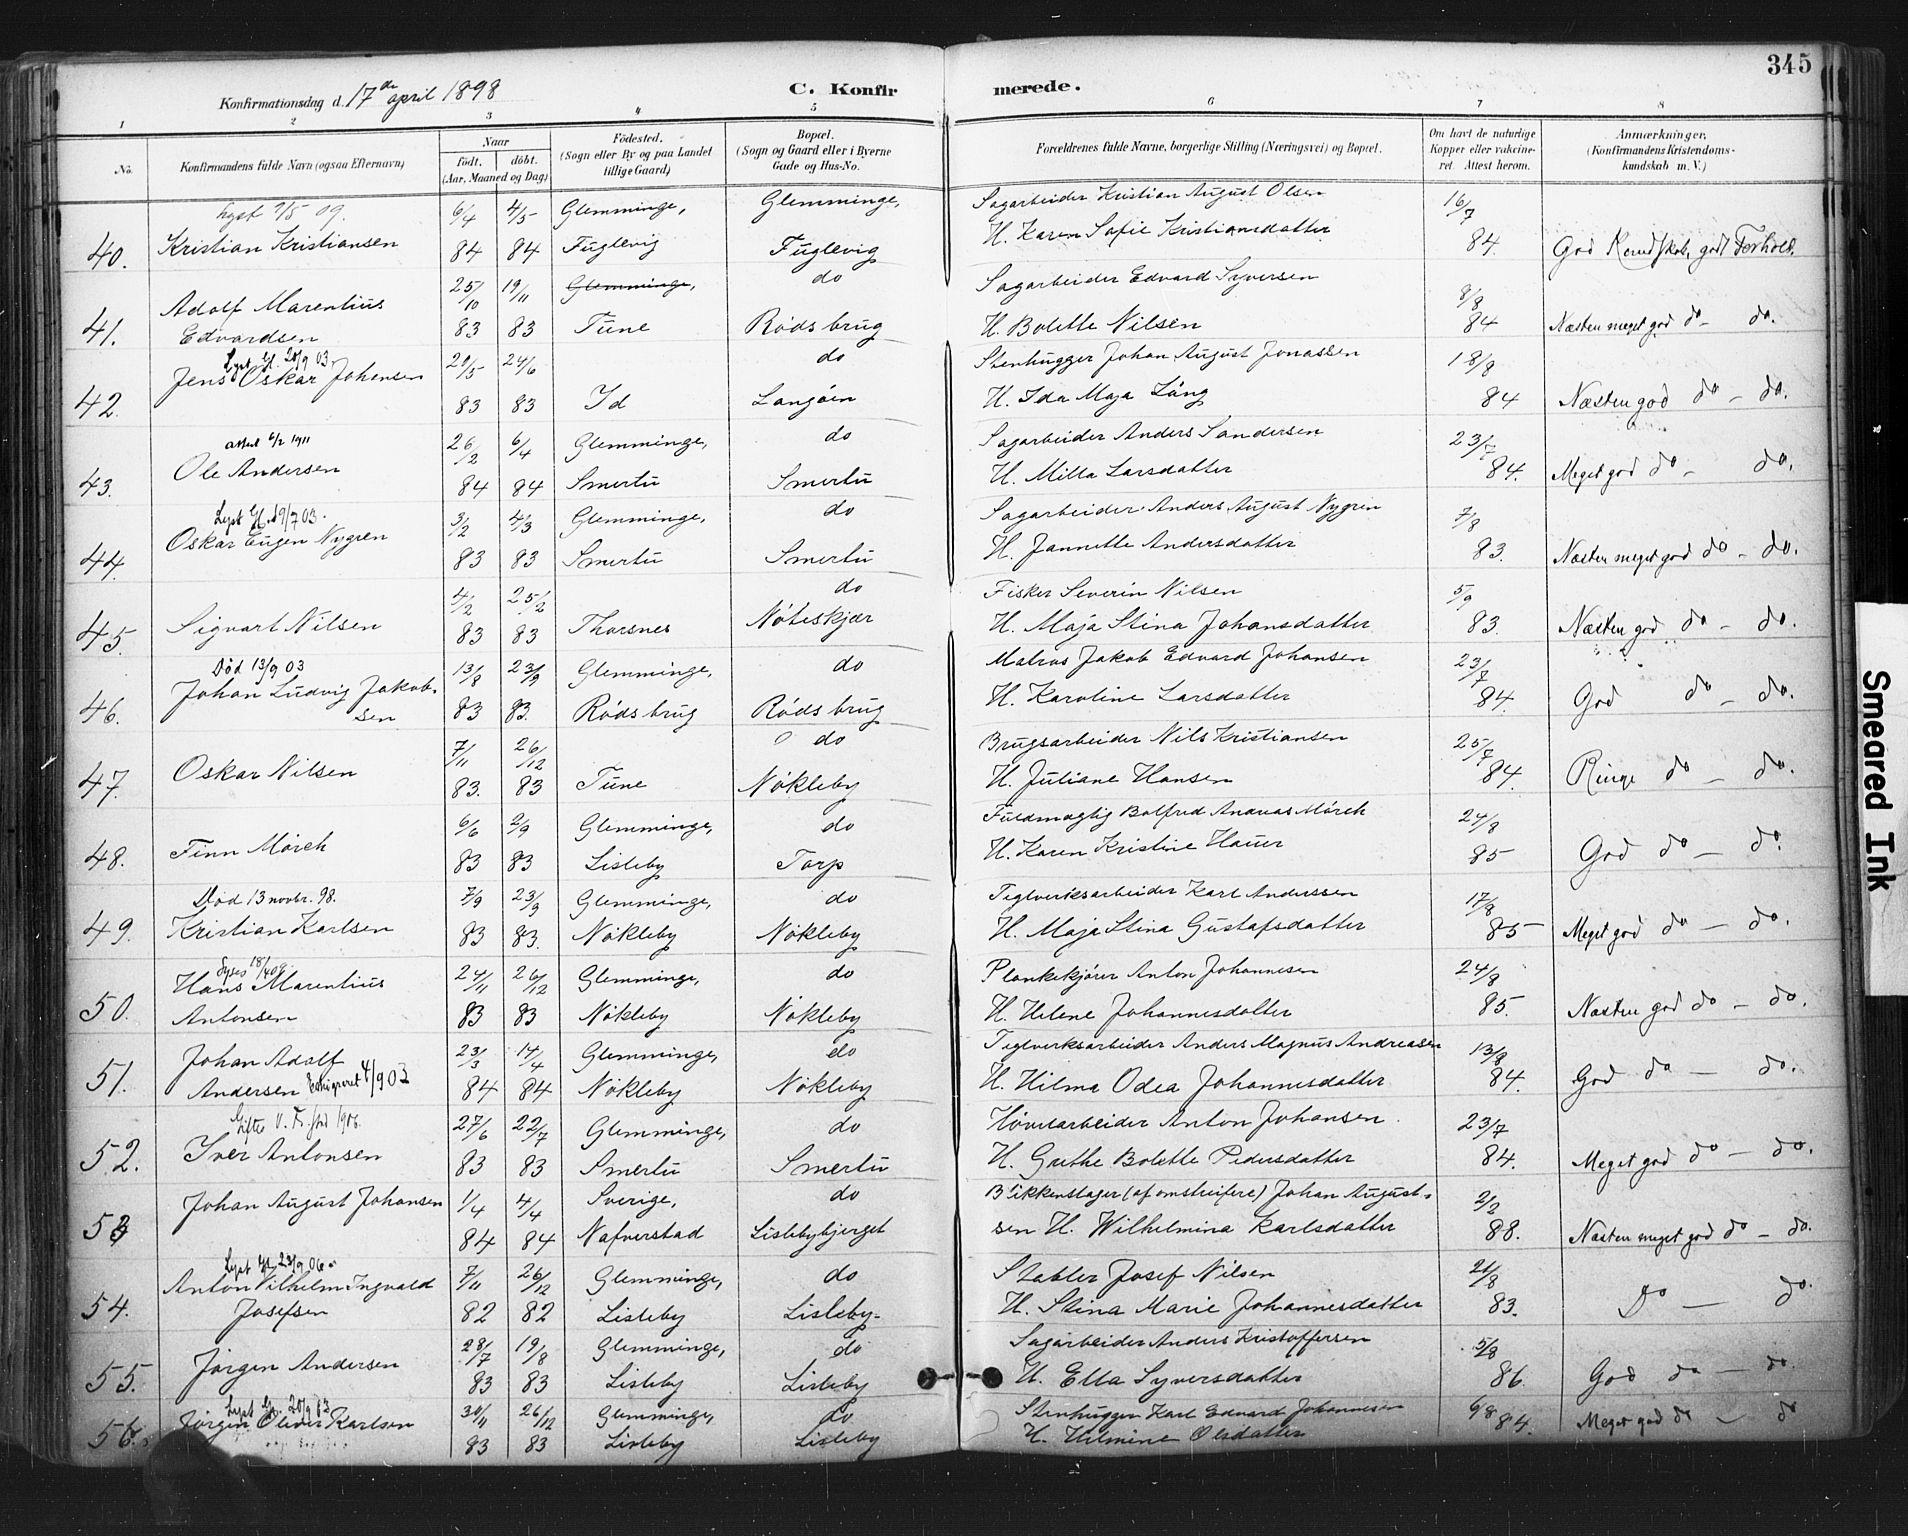 345
Konfirmationsdag d. 17de april 1898
C. Konfirmerede.
1 2 3 4 5 6 7 8
No. Konfirmandens fulde Navn (ogsaa Efternavn) Naar født. døbt. (Aar, Maaned og Dag) Fødested. (Sogn eller By og paa Landet tillige Gaard) Bopæl. (Sogn og Gaard eller i Byerne Gade og Hus-No. Forældrenes fulde Navne, borgerlige Stilling (Næringsvei) og Bopæl. Om havt de naturlige Kopper eller vakcineret. Attest herom. Anmærkninger, (Konfirmandens Kristendomskundskab m. V.)
Lyst 9/5 09. 6/4 4/5 Glemminge, Glemminge, Sagarbeider Kristian August Olsen 16/7
40. Kristian Kristiansen 84 84 Fuglevig Fuglevig H. Karen Sofie Kristiansdatter 84. God Kundskab, godt Forhold.
Adolf Marentius 25/10 19/11 Glemminge, do Sagarbeider Edvard Syversen 8/8
41. Edvardsen 83 83 Tune Røds brug H. Bolette Nilsen 84 Næsten meget god do – do.
Lyst Gl. 20/9 03. 24/6 do Stenhugger Johan August Jonassen 18/8
42. Jens Oskar Johansen 83 83 Id Langøen H. Ida Maja Lång 84 Næsten god do – do.
attest 6/2 1911 26/2 6/4 Glemminge, do Sagarbeider Anders Sandersen 23/7
43. Ole Andersen 84 84 Smertu Smertu H. Milla Larsdatter 84. Meget god do – do.
Lyst Gl. 19/7 03. 3/2 4/3 Glemminge, do Sagarbeider Anders August Nygren 7/8
44. Oskar Eugen Nygren 83 83 Smertu Smertu H. Jannette Andersdatter 83. Næsten meget god do – do.
4/2 25/2 do Fisker Severin Nilsen 5/9
45. Sigvart Nilsen 83 83 Thorsnes Nøteskjær H. Maja Stina Johansdatter 83. Næsten god do – do.
Død 13/9 03 13/8 23/9 Glemminge, do Matros Jakob Edvard Johansen 23/7
46. Johan Ludvig Jakobsen 83 83. Røds brug Røds brug H. Karoline Larsdatter 84. God do – do.
7/11 26/12 do Brugsarbeider Nils Kristiansen 25/7
47. Oskar Nilsen 83. 83 Tune Nøkleby H. Juliane Hansen 84. Ringe do – do.
6/6 2/9 Glemminge, do Fuldmægtig Bolfred Andreas Mørch 24/8
48. Finn Mørch 83 83 Lisleby Torp H. Karen Kristine Hauer 85 God do – do.
Død 13 novbr. 98. 7/9 23/9 Glemminge, do Teglverksarbeider Karl Anderssen 17/8
49. Kristian Karlsen 83 83. Nøkleby Nøkleby H. Maja Stina Gustafsdatter 85 Meget god do – do.
18/4 09 Hans Marentius 24/11 26/12 Glemminge, do Plankekjører Anton Johannesen 24/8
50. Antonsen 83 83 Nøkleby Nøkleby H. Helene Johannesdatter 85. Næsten god do – do.
Johan Adolf 23/3 14/4 Glemminge, do Teglverksarbeider Anders Magnus Andreasen 13/8
51. Andersen Emigreret 4/9 03 84 84 Nøkleby Nøkleby H. Hilma Odea Johannesdatter 84. God do – do.
Gifte 1906. 27/6 22/7 Glemminge, do Høvlarbeider Anton Johansen. 23/7
52. Iver Antonsen 83 83 Smertu Smertu H. Grethe Bolette Pedersdatter 84. Meget god do – do.
Johan August Johansen 1/4 4/4 Sverige, do Blikkenslager (af omstreifere) Johan August- 2/2
53 84 84 Nafverstad Lislebybjerget sen H. Wilhelmina Karlsdatter 88. Næsten meget god do – do.
Lyst Gl. 23/9 06. Anton Vilhelm Ingvald 7/11 26/12 Glemminge, do Stabler Josef Nilsen 21/8
54. Josefsen 82 82 Lisleby Lisleby. H. Stina Marie Johannesdatter 83. Do – do.
28/7 19/8 Glemminge, do Sagarbeider Anders Kristoffersen 5/8
55. Jørgen Andersen 83 83 Lisleby Lisleby H. Ella Syversdatter 86. God do – do.
Lyst Gl. 20/9 03 30/11 26/12 Glemminge, do Stenhugger Karl Edvard Johannesen 6/8
56. Jørgen Oliver Karlsen 83 83 Lisleby Lisleby H. Hilmine Olsdatter 84. Meget god do – do
Smeared Ink